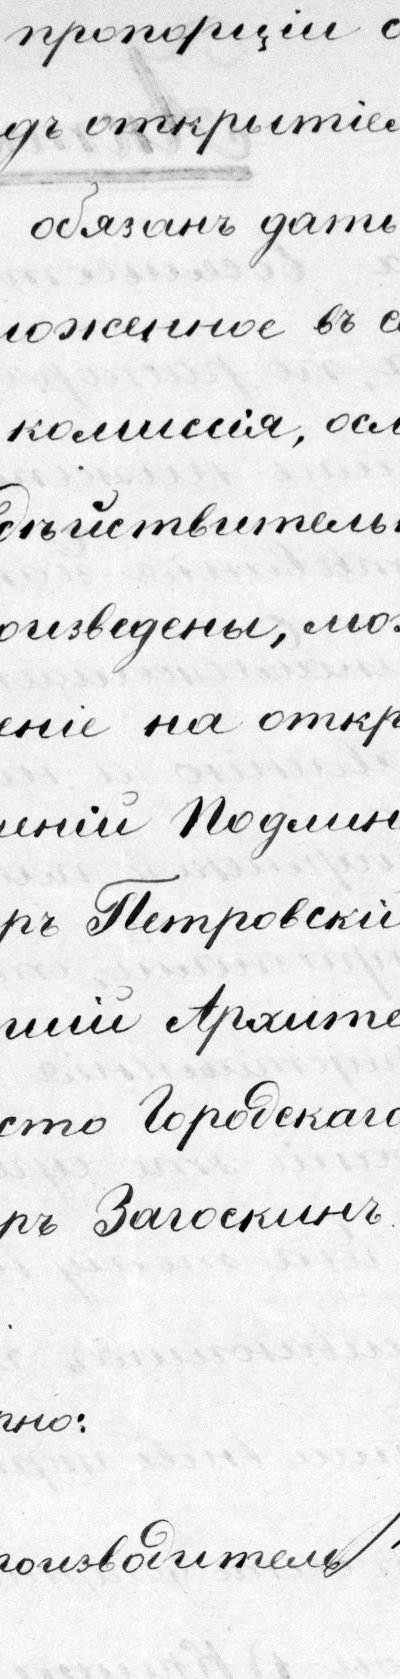 пропорціи с
дъ открытіе
обязанъ дать
ложенное въ с
комиссія, осм
дѣйствитель
оизведены, мож
еніе на откр
ченій Подлин
ръ Петровскій
шій Архите
сто Городскаго
ръ Загоскинъ.
рно:
поизводитель